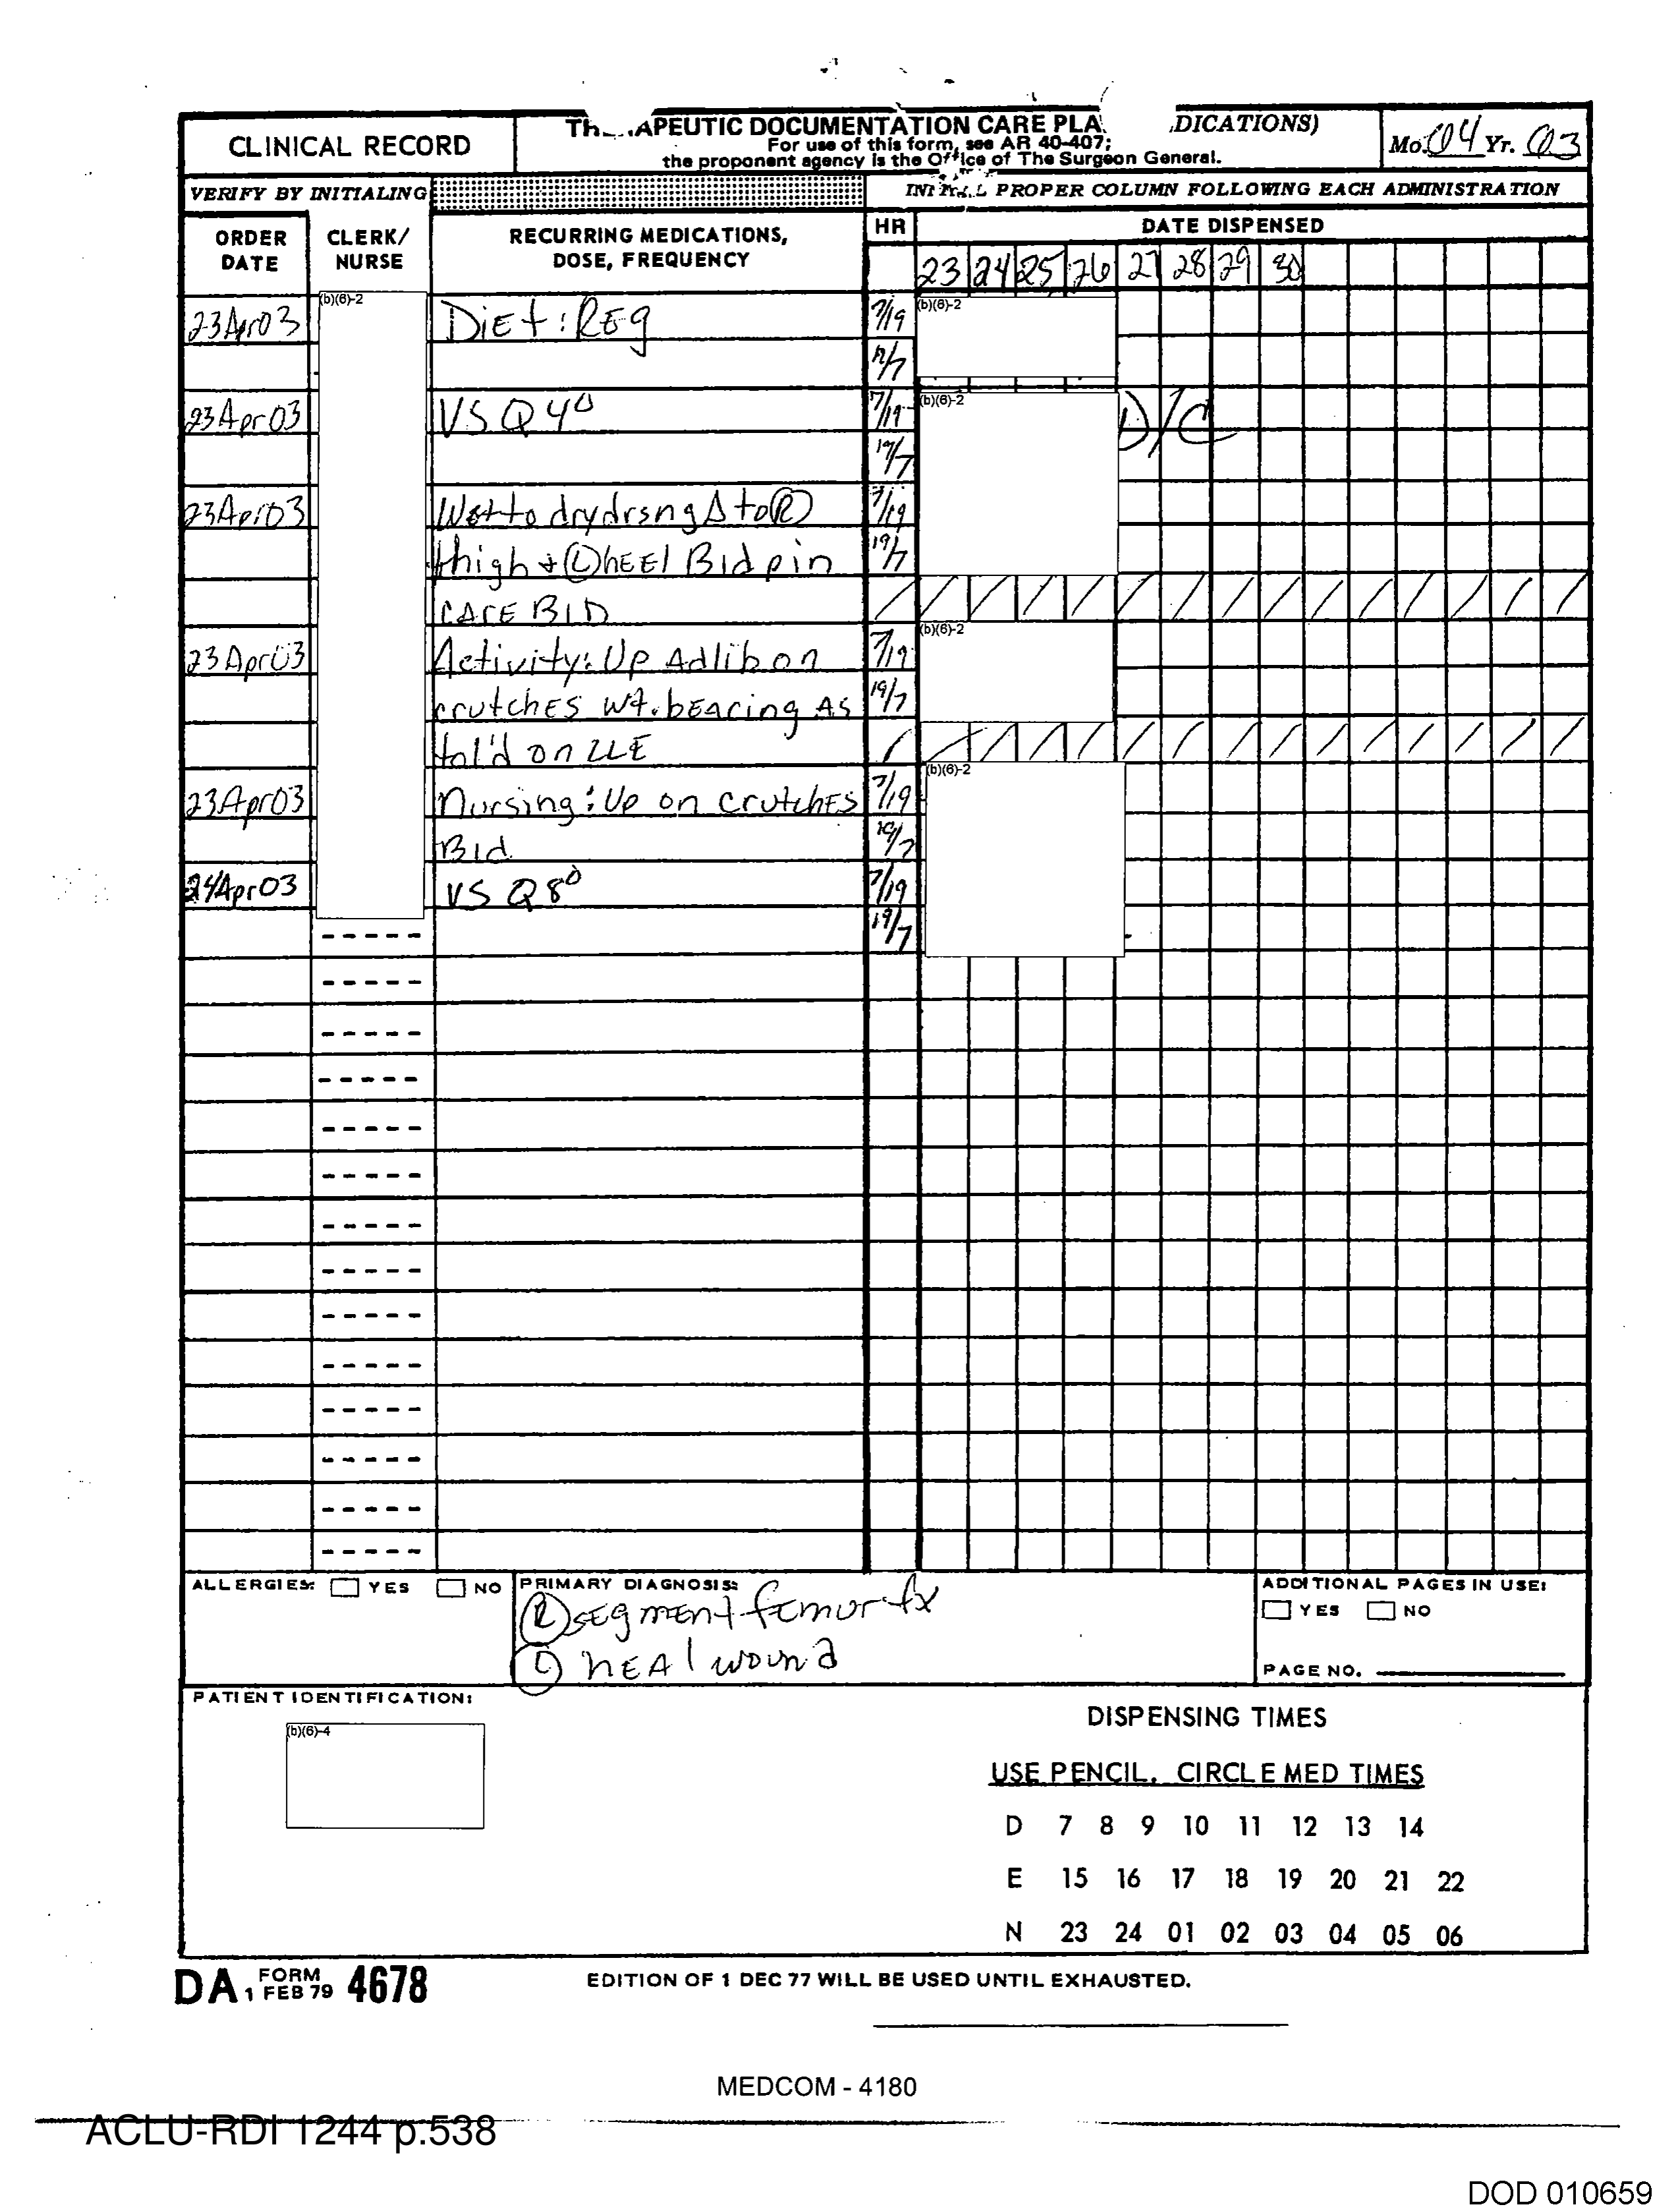 CLINICAL RECORD
APEUTIC DOCUMENTATION CARE PLA DICATIONS)
For use of this form, see AR 40-407;
the proponent agency is the Office of The Surgeon General.
Mo. 04 Yr. 03
VERIFY BY INITIALING
PROPER COLUMN FOLLOWING EACH ADMINISTRATION
ORDER DATE
CLERK/ NURSE
RECURRING MEDICATIONS, DOSE, FREQUENCY
HR
DATE DISPENSED
23 24 25 26 27 28 29 30
23Apr03 (b)(6)-2 DiEt: REg 7/19 (b)(6)-2
19/7
23Apr03 VS Q4° 7/19 (b)(6)-2 D/C
19/7
23Apr03 Wet to dry drsng Δ to Ⓡ 7/19
thigh + Ⓛ hEEl Bid pin 19/7
CARE BID
23Apr03 Activity: Up Adlib on 7/19 (b)(6)-2
crutches wt. bearing As 19/7
tol'd on LLE
23Apr03 Nursing: Up on crutches 7/19 (b)(6)-2
Bid 19/7
24Apr03 VS Q8° 7/19
19/7
ALLERGIES: YES NO
PRIMARY DIAGNOSIS:
Ⓡ segment femur fx
Ⓛ hEAl wound
ADDITIONAL PAGES IN USE:
YES NO
PAGE NO.
PATIENT IDENTIFICATION:
(b)(6)-4
DISPENSING TIMES
USE PENCIL. CIRCLE MED TIMES
D 7 8 9 10 11 12 13 14
E 15 16 17 18 19 20 21 22
N 23 24 01 02 03 04 05 06
DA FORM 1 FEB 79 4678
EDITION OF 1 DEC 77 WILL BE USED UNTIL EXHAUSTED.
MEDCOM - 4180
ACLU-RDI 1244 p.538
DOD 010659